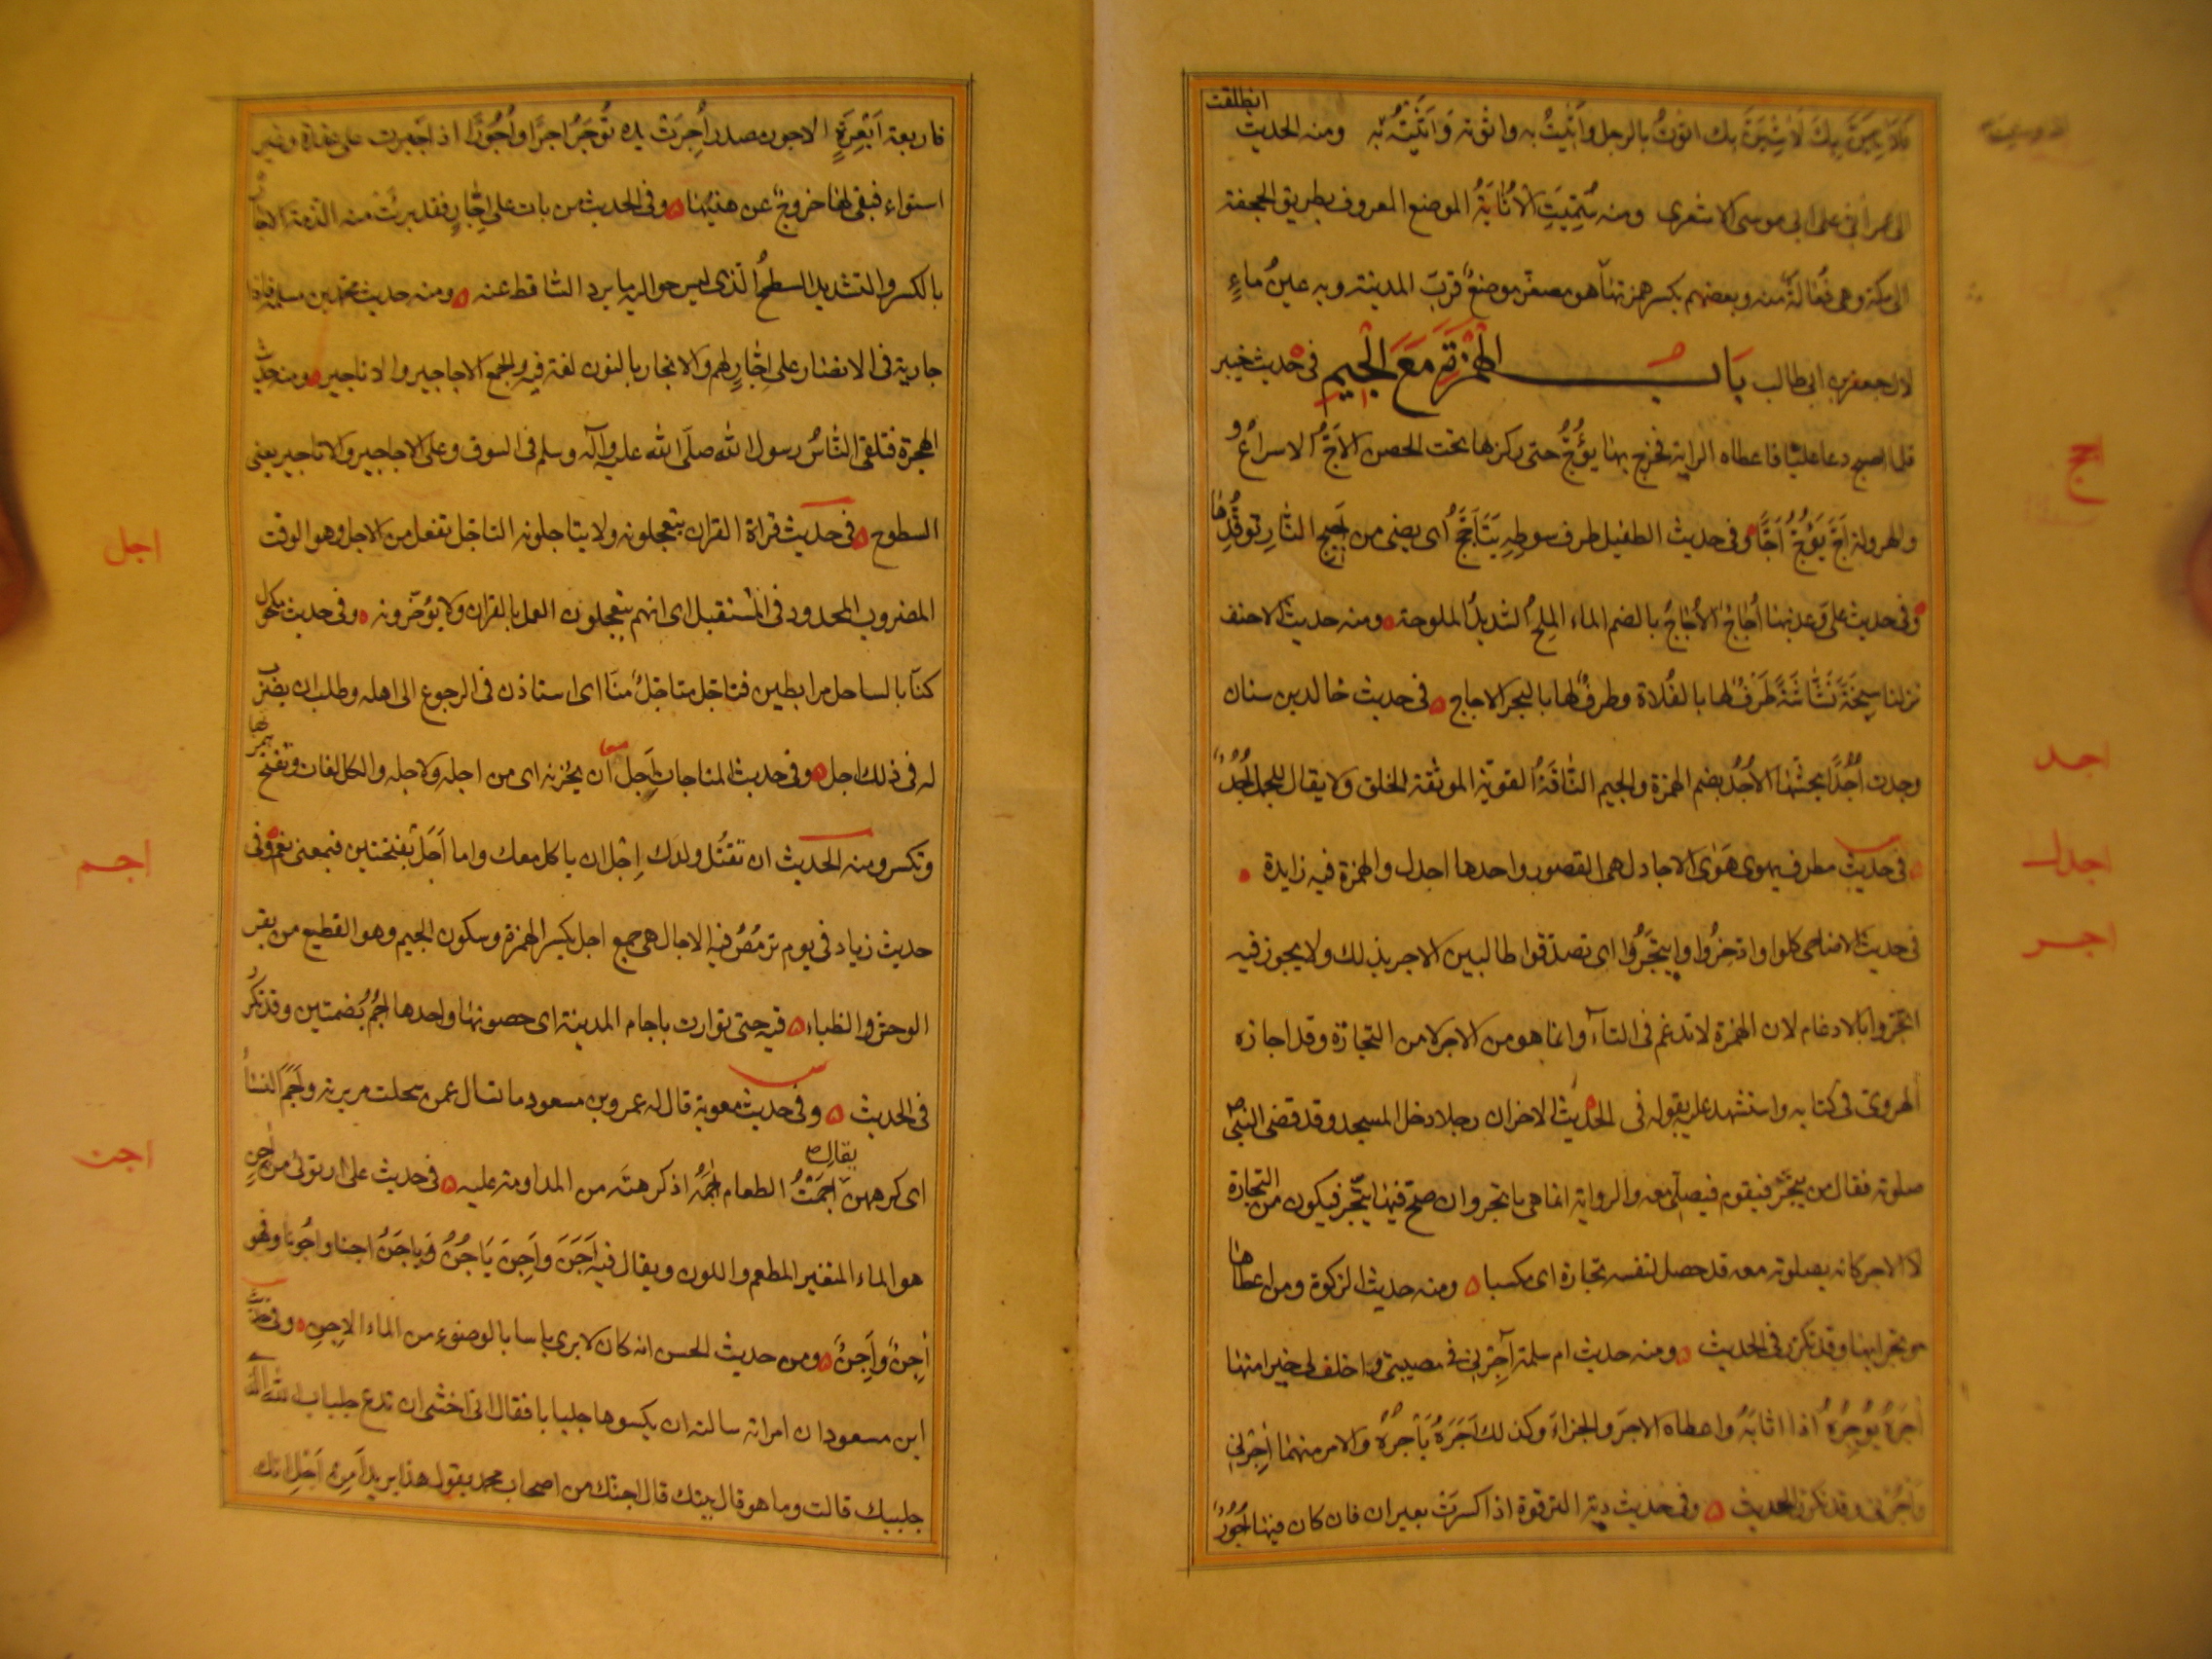 بك اثوت بالرجل واثيت به واثوته واثيته ومنه الحديث انطلقت
الى عمر أثي على ابى موسى الاشعرى ومنه سُمّيت الأثاية الموضع المعروف بطريق الجحفة
الى مكة وهى فعالة منه وبعضهم بكسر همزتها هو مصغر موضع قرب المدينة وبه عين ماء
لال جعفر بن ابى طالب باب الهمزة مع الجيم فى حديث خيبر
اج
فلما اصبح دعا عليّا فاعطاه الراية فخرج بها يؤج حتى ركزها تحت الحصن الاج الاسراع و
الهرولة اجّ يؤج اجّا وفى حديث الطفيل طرف سوطه يتاجج اى يضئ من اجيج النار توقدها
وفى حديث على وعذبها اجاج الاجاج بالضم الماء الملح الشديد الملوحة ومنه حديث الاحنف
نزلنا سبخة نشاشة طرف لها بالفلاة وطرف لها بالبحر الاجاج فى حديث خالد بن سنان
اجد
وجدت اجدا يحثها الاجد بضم الهمزة والجيم الناقة القوية الموثقة الخلق ولا يقال للجمل اجد
اجدل
فى حديث مطرف يهوى هوى الاجادل هى الصقور واحدها اجدل والهمزة فيه زايدة
اجر
فى حديث الاضاحى كلوا وادخروا وايتجروا اى تصدقوا طالبين الاجر بذلك ولا يجوز فيه
اتجروا بالادغام لان الهمزة لا تدغم فى التاء وانما هو من الاجر لا من التجارة وقد اجازه
الهروى فى كتابه واستشهد عليه بقوله فى الحديث الاخر ان رجلا دخل المسجد وقد قضى النبى
صلوته فقال من يتجر فيقوم فيصلى معه والرواية انما هى ياتجر وان صح فيها يتجر فيكون من التجارة
لا الاجر كانه بصلوته معه قد حصل لنفسه تجارة اى مكسبا ومنه حديث الزكوة ومن اعطاها
موتجرا بها وقد تكرر فى الحديث ومنه حديث ام سلمة آجرنى فى مصيبتى واخلف لى خيرا منها
آجره يوجره اذا اثابه واعطاه الاجر والجزاء وكذلك اجره ياجره والامر منهما آجرنى
واجرنى وقد تكرر فى الحديث وفى حديث دية الترقوة اذا كسرت بعيران فان كان فيها اجور
فاربعة ابعرة الاجور مصدر اجرت يده توجر اجرا واجورا اذا جبرت على عقدة وغير
استواء فبقى لها خروج عن هيئتها وفى الحديث من بات على اجار فقد برئت منه الذمة الاجار
بالكسر والتشديد السطح الذى ليس حواليه ما يرد الساقط عنه ومنه حديث محمد بن مسلمة فاذا
جارية فى الانصار على اجار لهم والانجار بالنون لغة فيه والجمع الاجاجير والاناجير ومنه حديث
الهجرة فتلقى الناس رسول الله صلى الله عليه وآله وسلم فى السوق وعلى الاجاجير والاناجير يعنى
اجل
السطوح فى حديث قراة القران يتعجلونه ولا يتاجلونه التاجل تفعل من الاجل وهو الوقت
المضروب المحدود فى المستقبل اى انهم يتعجلون العمل بالقران ولا يؤخرونه وفى حديث مكحول
كنا بالساحل مرابطين فتاجل متاجل منا اى استاذن فى الرجوع الى اهله وطلب ان يضرب
له فى ذلك اجل وفى حديث المناجات اجل ان يحزنه اى من اجله ولاجله والكل لغات وتفتح همزتها
اجم
وتكسر ومنه الحديث ان تقتل ولدك اجل ان ياكل معك واما اجل بفتحتين فبمعنى نعم وفى
حديث زياد فى يوم ترمض فيه الاجال هى جمع اجل بكسر الهمزة وسكون الجيم وهو القطيع من بقر
الوحش والظباء فيه حتى توارت باجام المدينة اى حصونها واحدها اجم بضمتين وقد تكرر
فى الحديث وفى حديث معوية قال له عمرو بن مسعود ما تسال عمن سحلت مريرته واجم النساء
اجن
اى كرههن يقال اجمت الطعام اجمه اذا كرهته من المداومة عليه فى حديث على ارتوى من آجن
هو الماء المتغير الطعم واللون ويقال فيه اجن واجن ياجن وياجن اجنا واجونا وهو
آجن واجن ومن حديث الحسن انه كان لا يرى باسا بالوضوء من الماء الاجن وفى حديث
ابن مسعود ان امراته سالته ان يكسوها جلبابا فقال انى اخشى ان تدعى جلباب الله الذى
جلببك قالت وما هو قال بيتك قال اجنك من اصحاب محمد يقول هذا يريد امن اجل انك